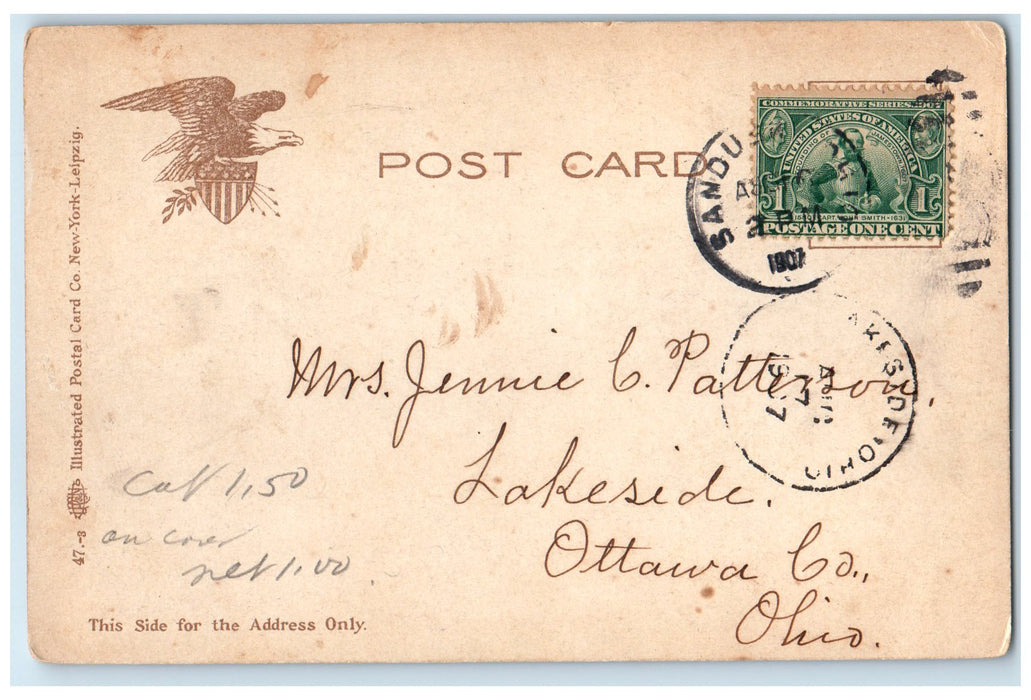 POST CARD
COMMEMORATIVE SERIES 1907
UNITED STATES OF AMERICA
FOUNDING OF JAMESTOWN 1607
1 1
1580 CAPT. JOHN SMITH 1631
POSTAGE ONE CENT
SANDU
1907
Mrs. Jennie C. Patterson,
Lakeside.
Ottawa Co.,
Ohio.
AKESIDE OHIO
AUG
7
1907
Cat 1.50
on cover
net 1.00
47.-3 Illustrated Postal Card Co. New-York-Leipzig.
This Side for the Address Only.